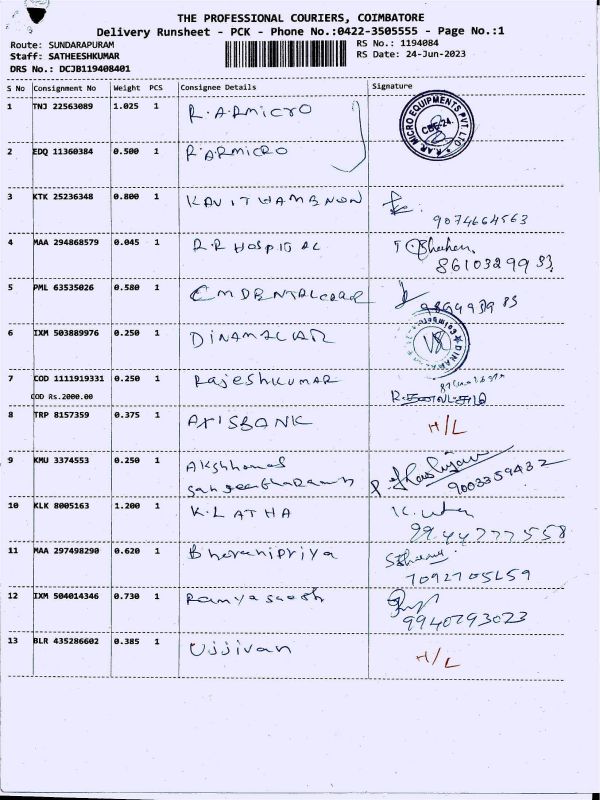 THE PROFESSIONAL COURIERS, COIMBATORE
Delivery Runsheet - PCK - Phone No.:0422-3505555 - Page No.:1
Route: SUNDARAPURAM
RS No.: 1194084
Staff: SATHEESHKUMAR
RS Date: 24-Jun-2023
DRS No.: DCJB119408401
S No Consignment No Weight PCS Consignee Details Signature
1 TNJ 22563089 1.025 1 R.ARMICRO
MICRO EQUIPMENTS PVT. LTD
2 EDQ 11360384 0.500 1 R.ARMICRO
3 KTK 25236348 0.800 1
9074664563
4 MAA 294868579 0.045 1 R.R HOSPITAL
8610329933
5 PML 63535026 0.580 1
6 IXM 503889976 0.250 1 DINAMALAR
7 COD 1111919331 0.250 1 RAJESHKUMAR
COD Rs.2000.00
8 TRP 8157359 0.375 1 AXISBANK H/L
9 KMU 3374553 0.250 1
9003359432
10 KLK 8005163 1.200 1 K.LATHA
9944777558
11 MAA 297498290 0.620 1 Bharanipriya
7092705159
12 IXM 504014346 0.730 1
9940793023
13 BLR 435286602 0.385 1 Ujjivan H/L